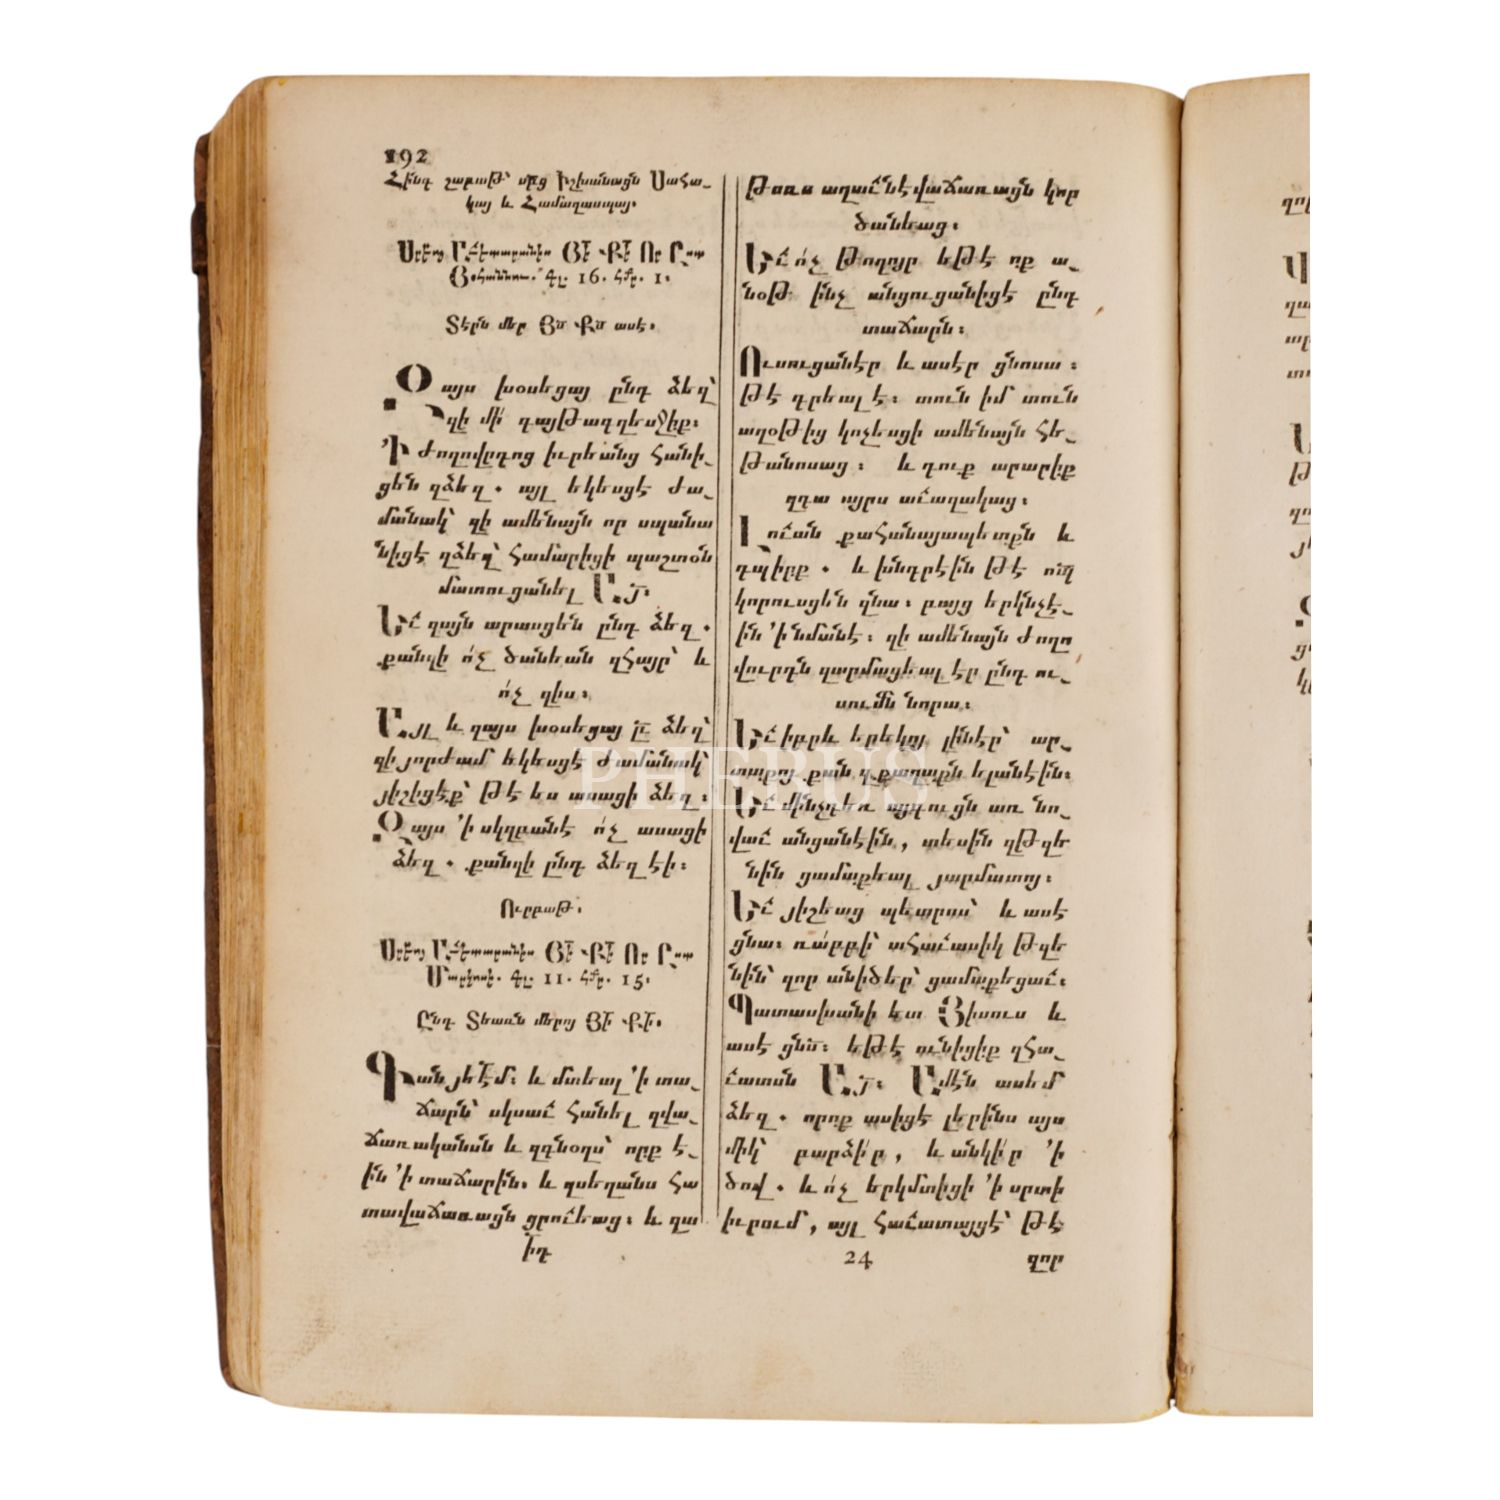 192
Հինգ շաբաթ՝ սրբց Իշխանացն Սահա֊
կայ և Համազասպայ.
Սրբոյ Աւետարանիս ՅԻ ՔԻ Որ Ըստ
Յօհաննու. Գլ. 16. հմր. 1.
Տէրն մեր ՅՍ ՔՍ ասէ.
Զայս խօսեցայ ընդ ձեզ՝
զի մի՛ գայթագղեսջիք։
՚Ի ժողովրդոց իւրեանց հանի֊
ցեն զձեզ. այլ եկեսցէ ժա֊
մանակ՝ զի ամենայն որ սպանա
նիցէ զձեզ՝ համարիցի պաշտօն
մատուցանել ԱՅ։
Եւ զայն արասցեն ընդ ձեզ.
քանզի ո՛չ ծանեան զՀայր՝ և
ո՛չ զիս։
Այլ և զայս խօսեցայ ընդ ձեզ՝
զի յորժամ եկեսցէ ժամանակ՝
յիշիցէք՝ թէ ես ասացի ձեզ։
Զայս ՚ի սկզբանէ ո՛չ ասացի
ձեզ. քանզի ընդ ձեզ էի։
Ուրբաթ.
Սրբոյ Աւետարանիս ՅԻ ՔԻ Որ Ըստ
Մարկոսի. Գլ. 11. հմր. 15.
Ընդ Տեառն մերոյ ՅԻ ՔԻ.
Գան յեէմ։ և մտեալ ՚ի տա֊
ճարն՝ սկսաւ հանել զվա֊
ճառականսն և զգնօղս՝ որք է֊
ին ՚ի տաճարին. և զսեղանս հա
տավաճառացն ցրուեաց։ և զա
իդ
թոռս աղաւնէվաճառացն կոր
ծանեաց։
Եւ ո՛չ թողոյր եթէ ոք ա֊
նօթ ինչ անցուցանիցէ ընդ
տաճարն։
Ուսուցանէր և ասէր ցնոսա։
թէ գրեալ է։ տուն իմ տուն
աղօթից կոչեսցի ամենայն հե֊
թանոսաց։ և դուք արարիք
զդա այրս աւազակաց։
Լուան քահանայապետքն և
դպիրք. և խնդրէին թէ որպ
կորուսցեն զնա։ բայց երկնչէ֊
ին ՚ի նմանէ։ զի ամենայն ժողո
վուրդն զարմացեալ էր ընդ ու֊
սումն նորա։
Եւ իբրև երեկոյ լինէր՝ ար֊
տաքոյ քան զքաղաքն ելանէին։
Եւ մինչդեռ այգուցն առ նո֊
վաւ անցանէին, տեսին զթզե
նին ցամաքեալ յարմատոյ։
Եւ յիշեաց պետրոս՝ և ասէ
ցնա։ ռա՛բբի՝ ահաւասիկ թզե
նին՝ զոր անիծեր՝ ցամաքեցաւ։
Պատասխանի ետ Յիսուս և
ասէ ցնս։ եթէ ունիցիք զհա֊
ւատսն ԱՅ։ Ամէն ասեմ
ձեզ. որոք ասիցէ լերինս այս
միկ՝ բարձի՛ր, և անկի՛ր ՚ի
ծով. և ո՛չ երկմտիցի ՚ի սրտի
իւրում, այլ հաւատայցէ՝ թէ
24
զոր